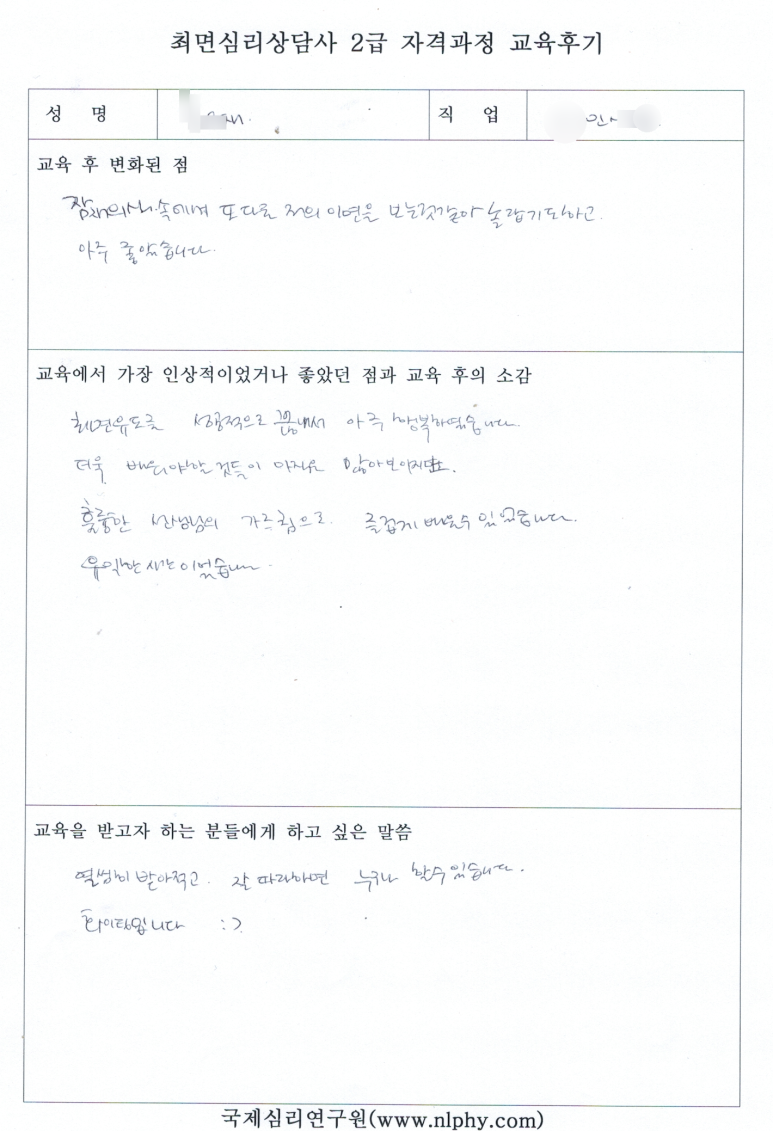 최면심리상담사 2급 자격과정 교육후기
성 명
직 업
교육 후 변화된 점
잠재의식 속에서 또다른 저의 이면을 보는것같아 놀랍기도하고
아주 좋았습니다.
교육에서 가장 인상적이었거나 좋았던 점과 교육 후의 소감
최면유도를 성공적으로 끝내서 아주 행복하였습니다.
더욱 배워야할 것들이 아직은 많아보이지만요.
훌륭한 선생님의 가르침으로 즐겁게 배울수 있었습니다.
유익한 시간이었습니다.
교육을 받고자 하는 분들에게 하고 싶은 말씀
열씸히 받아적고. 잘 따라하면 누구나 할수있습니다.
화이팅입니다 :)
국제심리연구원(www.nlphy.com)